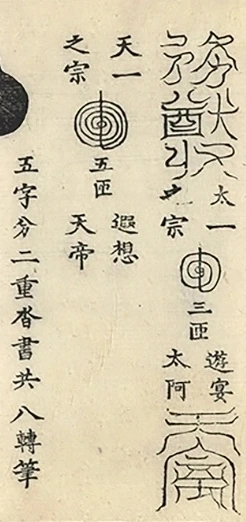 太一
之宗
三匝
遊宴
太阿
天一
之宗
五匝
遐想
天帝
五字分二重沓書共八轉筆